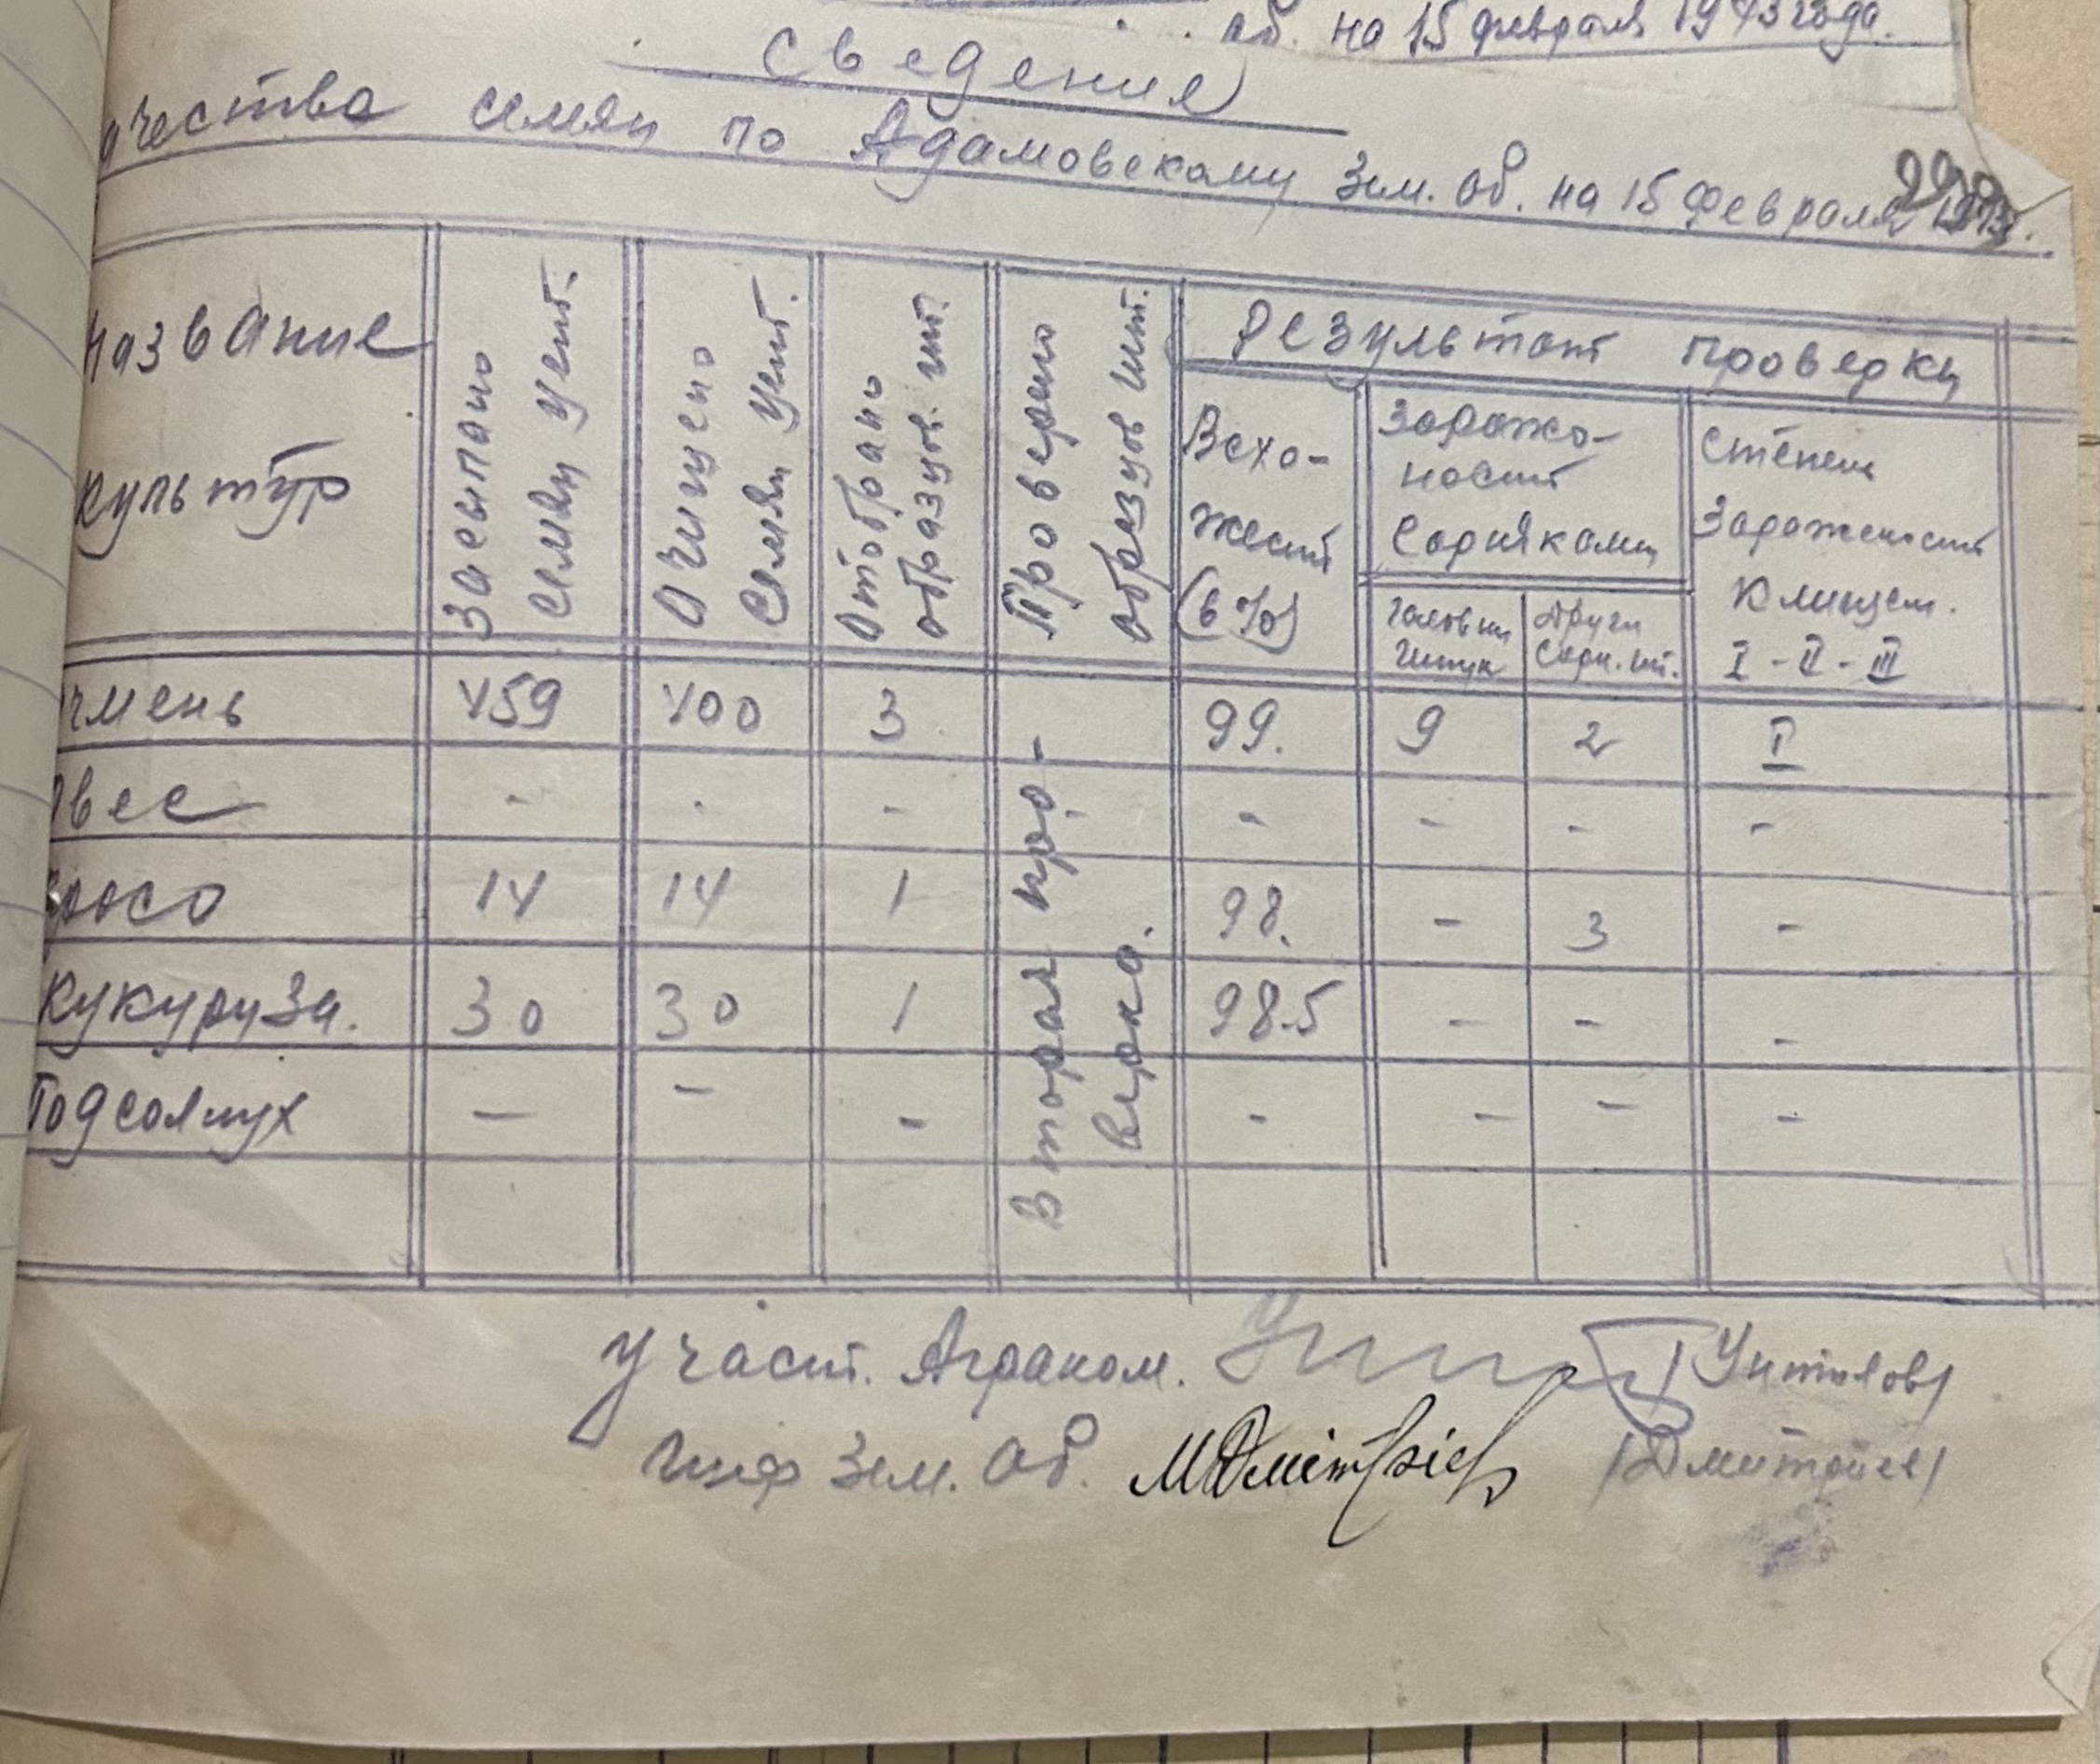 об. на 15 февраля 1943 года.
Сведение
ачества семян по Адамовскому Зем. об. на 15 февраля 1943.
Название культур
Засыпано семян цент.
Очищено семян цент.
Отобрано образцов. шт.
Проверено образцов шт.
Результат проверки
Всхо-
жест
(в %)
Заражо-
ност
Сорняками
Головни Штук
Други Сорн. шт.
Степень
Зараженост
Клищем.
I - II - III
чмень 459 400 3 99. 9 2 I
вес - - - - - - -
росо 14 14 1 98. - 3 -
Кукуруза. 30 30 1 98.5 - - -
Подсолнух - - - - - - -
Вторая про-
верка.
Участ. Аграном. /Унтилов/
Шеф Зем. Об. МДмітрієв /Дмитриев/